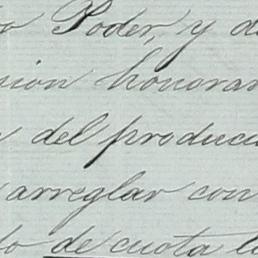 Poder, y d
sion honorar
del produc
arreglar con
to de cuota l